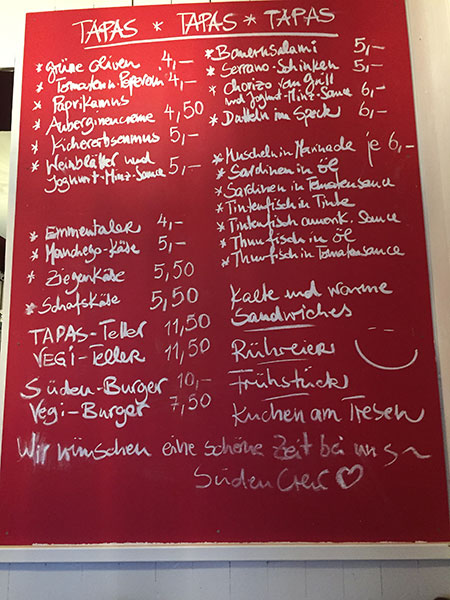 TAPAS * TAPAS * TAPAS
* Grüne Oliven 4,-
* Tomaten in Peperoni 4,-
* Paprikamus
* Auberginencreme 4,50
* Kichererbsenmus 5,-
* Weinblätter und
Joghurt-Minz-Sauce 5,-
* Emmentaler 4,-
* Manchego-Käse 5,-
* Ziegenkäse 5,50
* Schafskäse 5,50
TAPAS-Teller 11,50
VEGI-Teller 11,50
Süden-Burger 10,-
Vegi-Burger 7,50
* Bauernsalami 5,-
* Serrano-Schinken 5,-
* Chorizo vom Grill
und Joghurt-Minz-Sauce 6,-
* Datteln im Speck 6,-
* Muscheln in Marinade je 6,-
* Sardinen in Öl
* Sardinen in Tomatensauce
* Tintenfisch in Tinte
* Tintenfisch amerik. Sauce
* Thunfisch in Öl
* Thunfisch in Tomatensauce
Kalte und warme
Sandwiches
Rühreier
Frühstück
Kuchen am Tresen
Wir wünschen eine schöne Zeit bei uns~
Süden Crew ♡